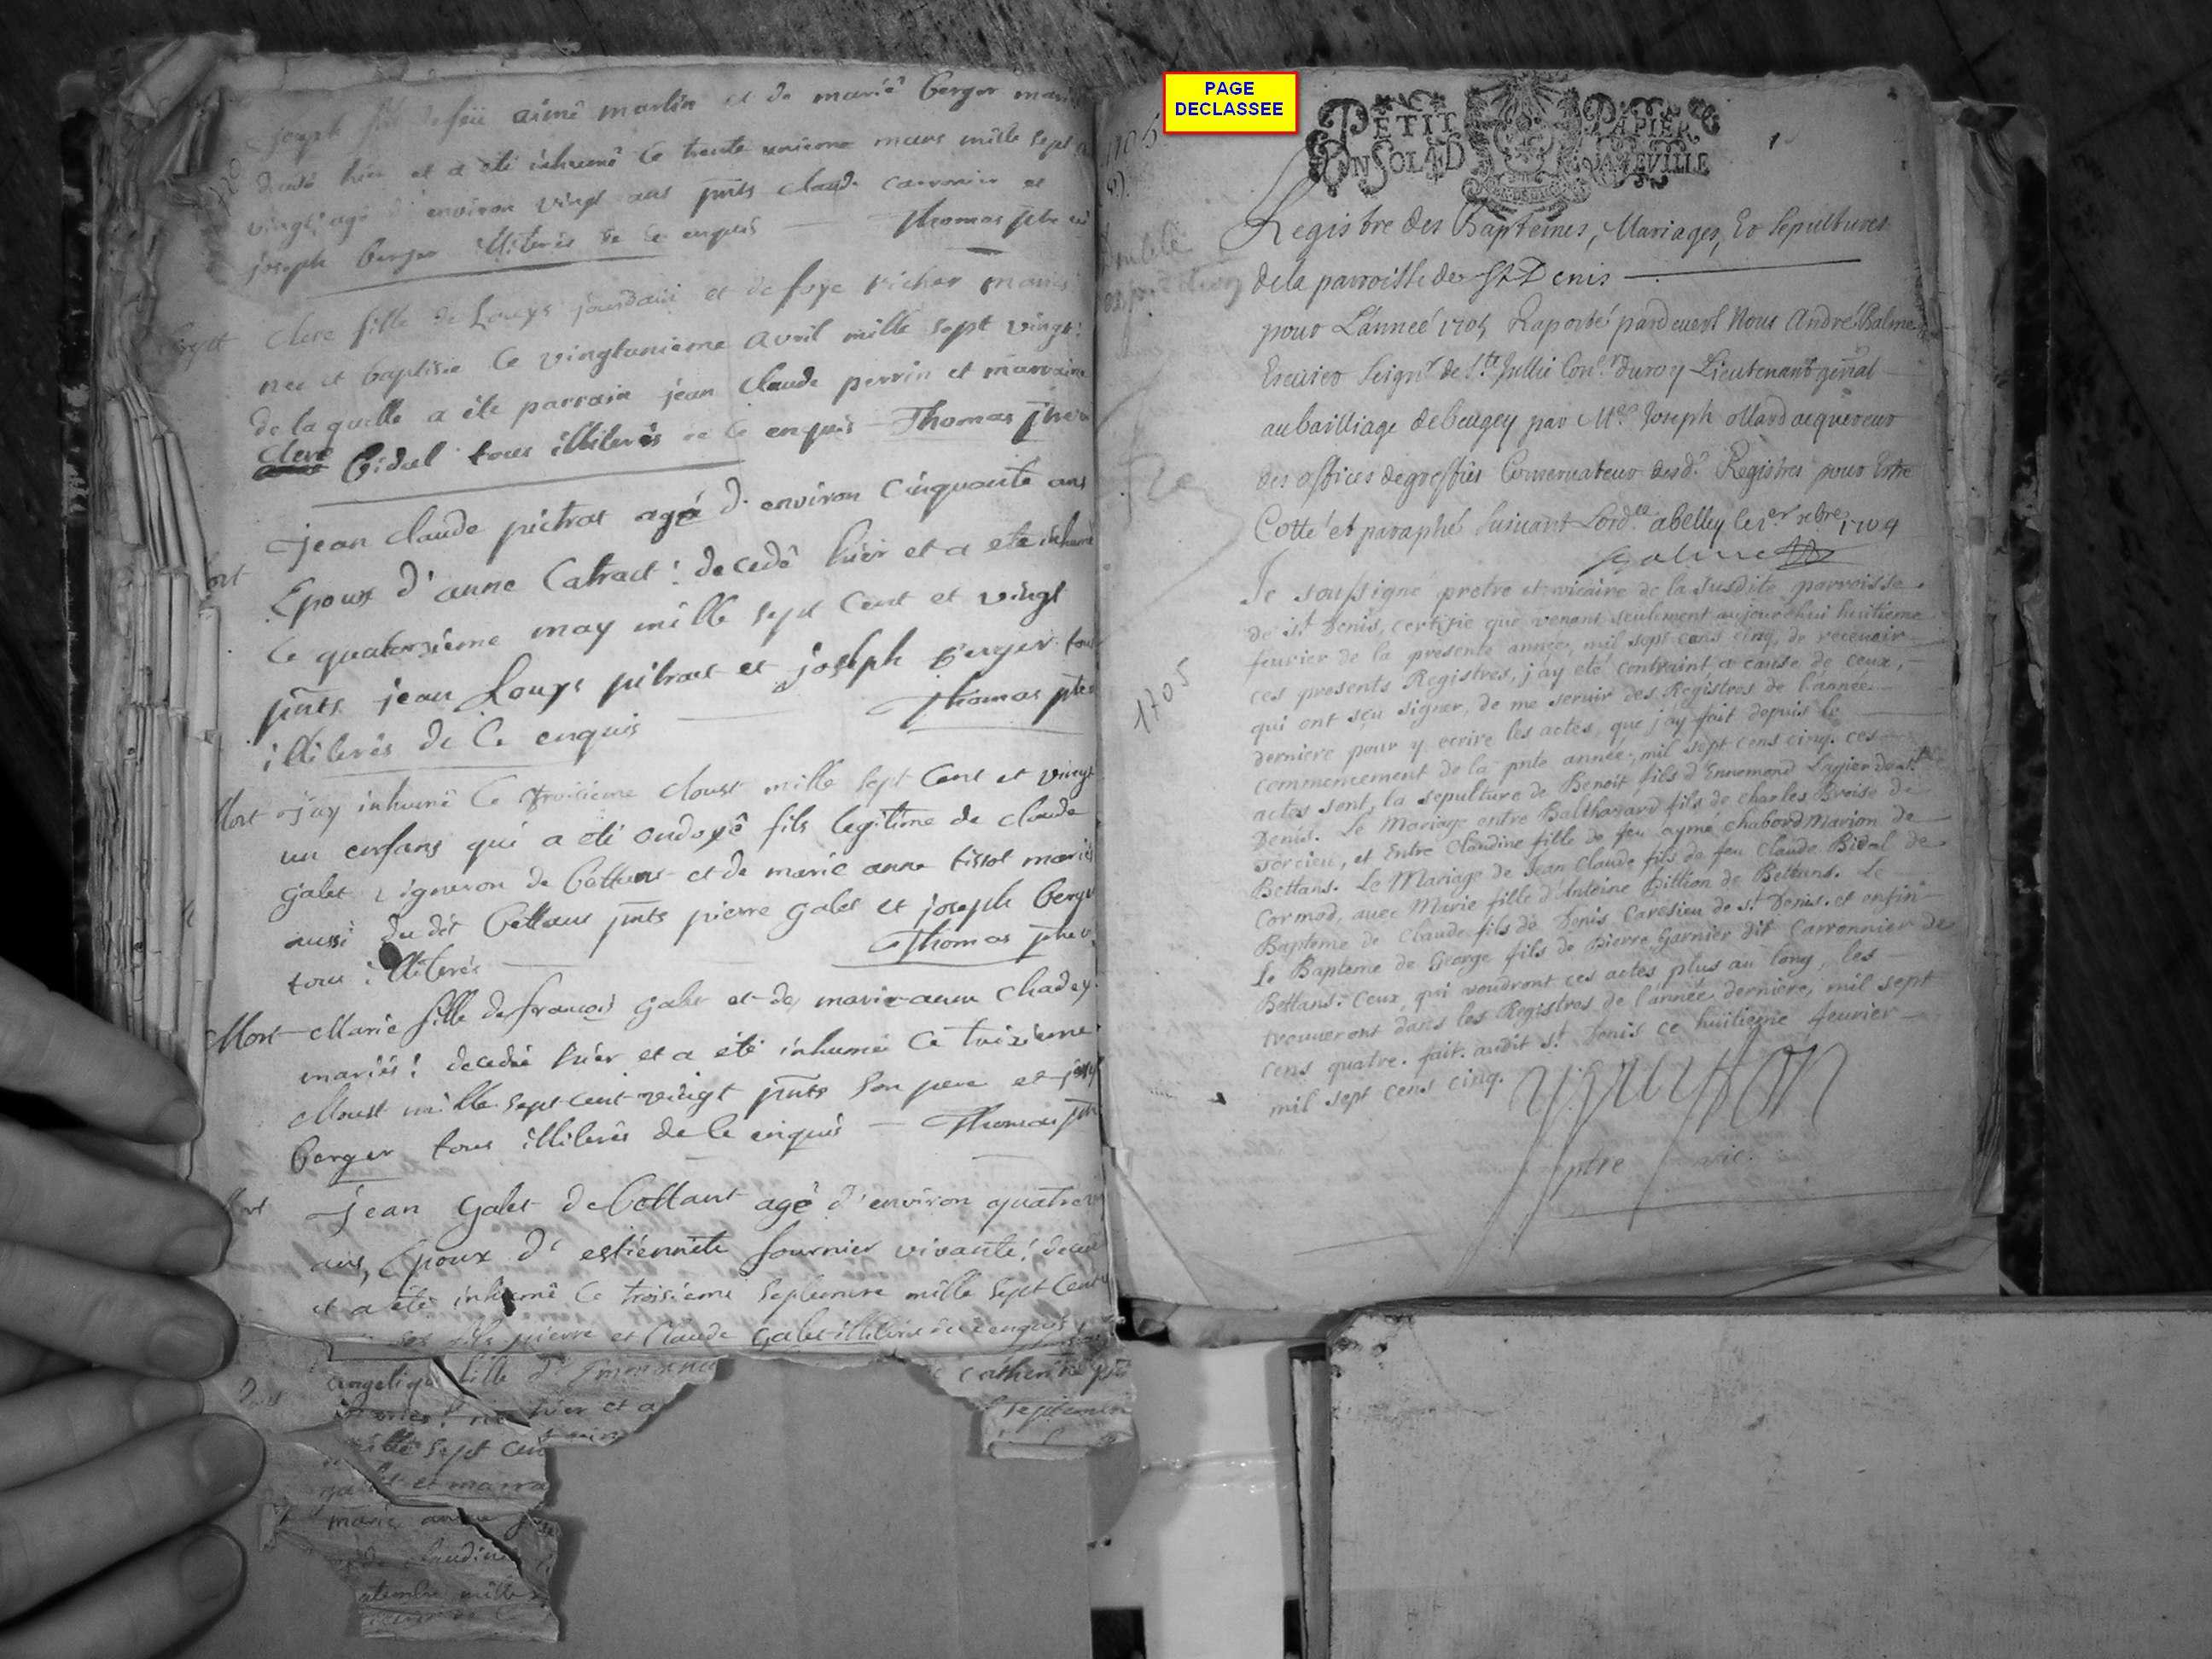 joseph fils de feü aimé martin et de marië berger
décédé hier et a été inhumé le trente unieme mars mille sept
vingt agé d'environ vingt ans pnts claude carronier et
joseph berger illiterés de ce enquis Thomas ptre
clere fille de Louys jourdain et de
née et baptisée le vingtunieme avril mille sept vingt:
de laquelle a été parrain jean claude perrin et marraine
clere bidal tous illiterés de ce enquis Thomas ptre
mort jean claude pietrat agé d'environ cinquante ans
Epoux d'anne Catract: decedé hier et a eté inhumé
le quatorzieme may mille sept cent et vingt
pnts jean Louys pitract et joseph berger tous
illiterés de ce enquis Thomas ptre
Mort j'ay inhumé le troisieme Aoust mille sept cent et vingt
un enfans qui a été ondoyé fils legitime de claude
galet vigneron de bettans et de marie anne tissot mariés
aussi du dit bettans pnts pierre galet et joseph berger
tous illiterés Thomas ptre
Mort Marie fille de françois galet et de marie-anne chadey
mariés: decedée hier et a été inhumée le troisieme
Aoust mille sept cent vingt pnts son pere et joseph
berger tous illiterés de ce enquis Thomas ptre
Mort Jean galet de bettant agé d'environ quatre
ans, Epoux d'estiennete fournier vivante:
et a été inhumé le troisieme septembre mille sept cent
ses fils pierre et claude galet illiterés de ce enquis
angelique fille d' catherine
hier et a septem
mille sept cent
et marra
marie anne
claudine
mille
PAGE
DECLASSEE
1705
PETIT PAPIER
UN SOL 4 D LA FEVILLE
Registre des Baptemes, Mariages, Et Sepultures
de la parroisse de St Denis
pour L'anneé 1705 Raporté pardevant Nous André Balme
Escuier Seignr de Ste Jullie Conr du roy Lieutenant gñral
au bailliage de beugey par Mre Joseph ollard acquereur
des offices de greffier Conservateur desd. Registres pour Estre
Cotté et paraphé Suivant Lordce a belley le 1er xbre 1704
Balme
Je soussigné pretre et vicaire de la susdite parroisse
de st Denis, certifie que venant seulement aujourdhui huitieme
feurier de la presente année, mil sept cens cinq, de recevoir
ces presents Registres, j'ay eté contraint, a cause de ceux,
qui ont sçu signer, de me servir des Registres de l'année
1705
derniere pour y ecrire les actes, que j'ay fait depuis le
commencement de la pnte année, mil sept cens cinq. ces
actes sont, la sepulture de Benoit fils d'Ennemond Lagier de st
Denis. Le Mariage entre Balthazard fils de charles Broise de
Torcieu, et Entre Claudine fille de feu aymé chabord marion de
Bettans. Le Mariage de Jean Claude fils de feu Claude Bidal de
Cormod, avec Marie fille d'Antoine Billion de Bettans. Le
Bapteme de Claude fils de Denis Caresieu de st Denis. et enfin
Le Bapteme de George fils de Pierre Garnier dit Carronnier de
Bettans. Ceux, qui voudront ces actes plus au long, les
trouveront dans les Registres de l'année derniere, mil sept
cens quatre. fait audit st Denis ce huitieme feurier
mil sept cens cinq.
ptre vic.